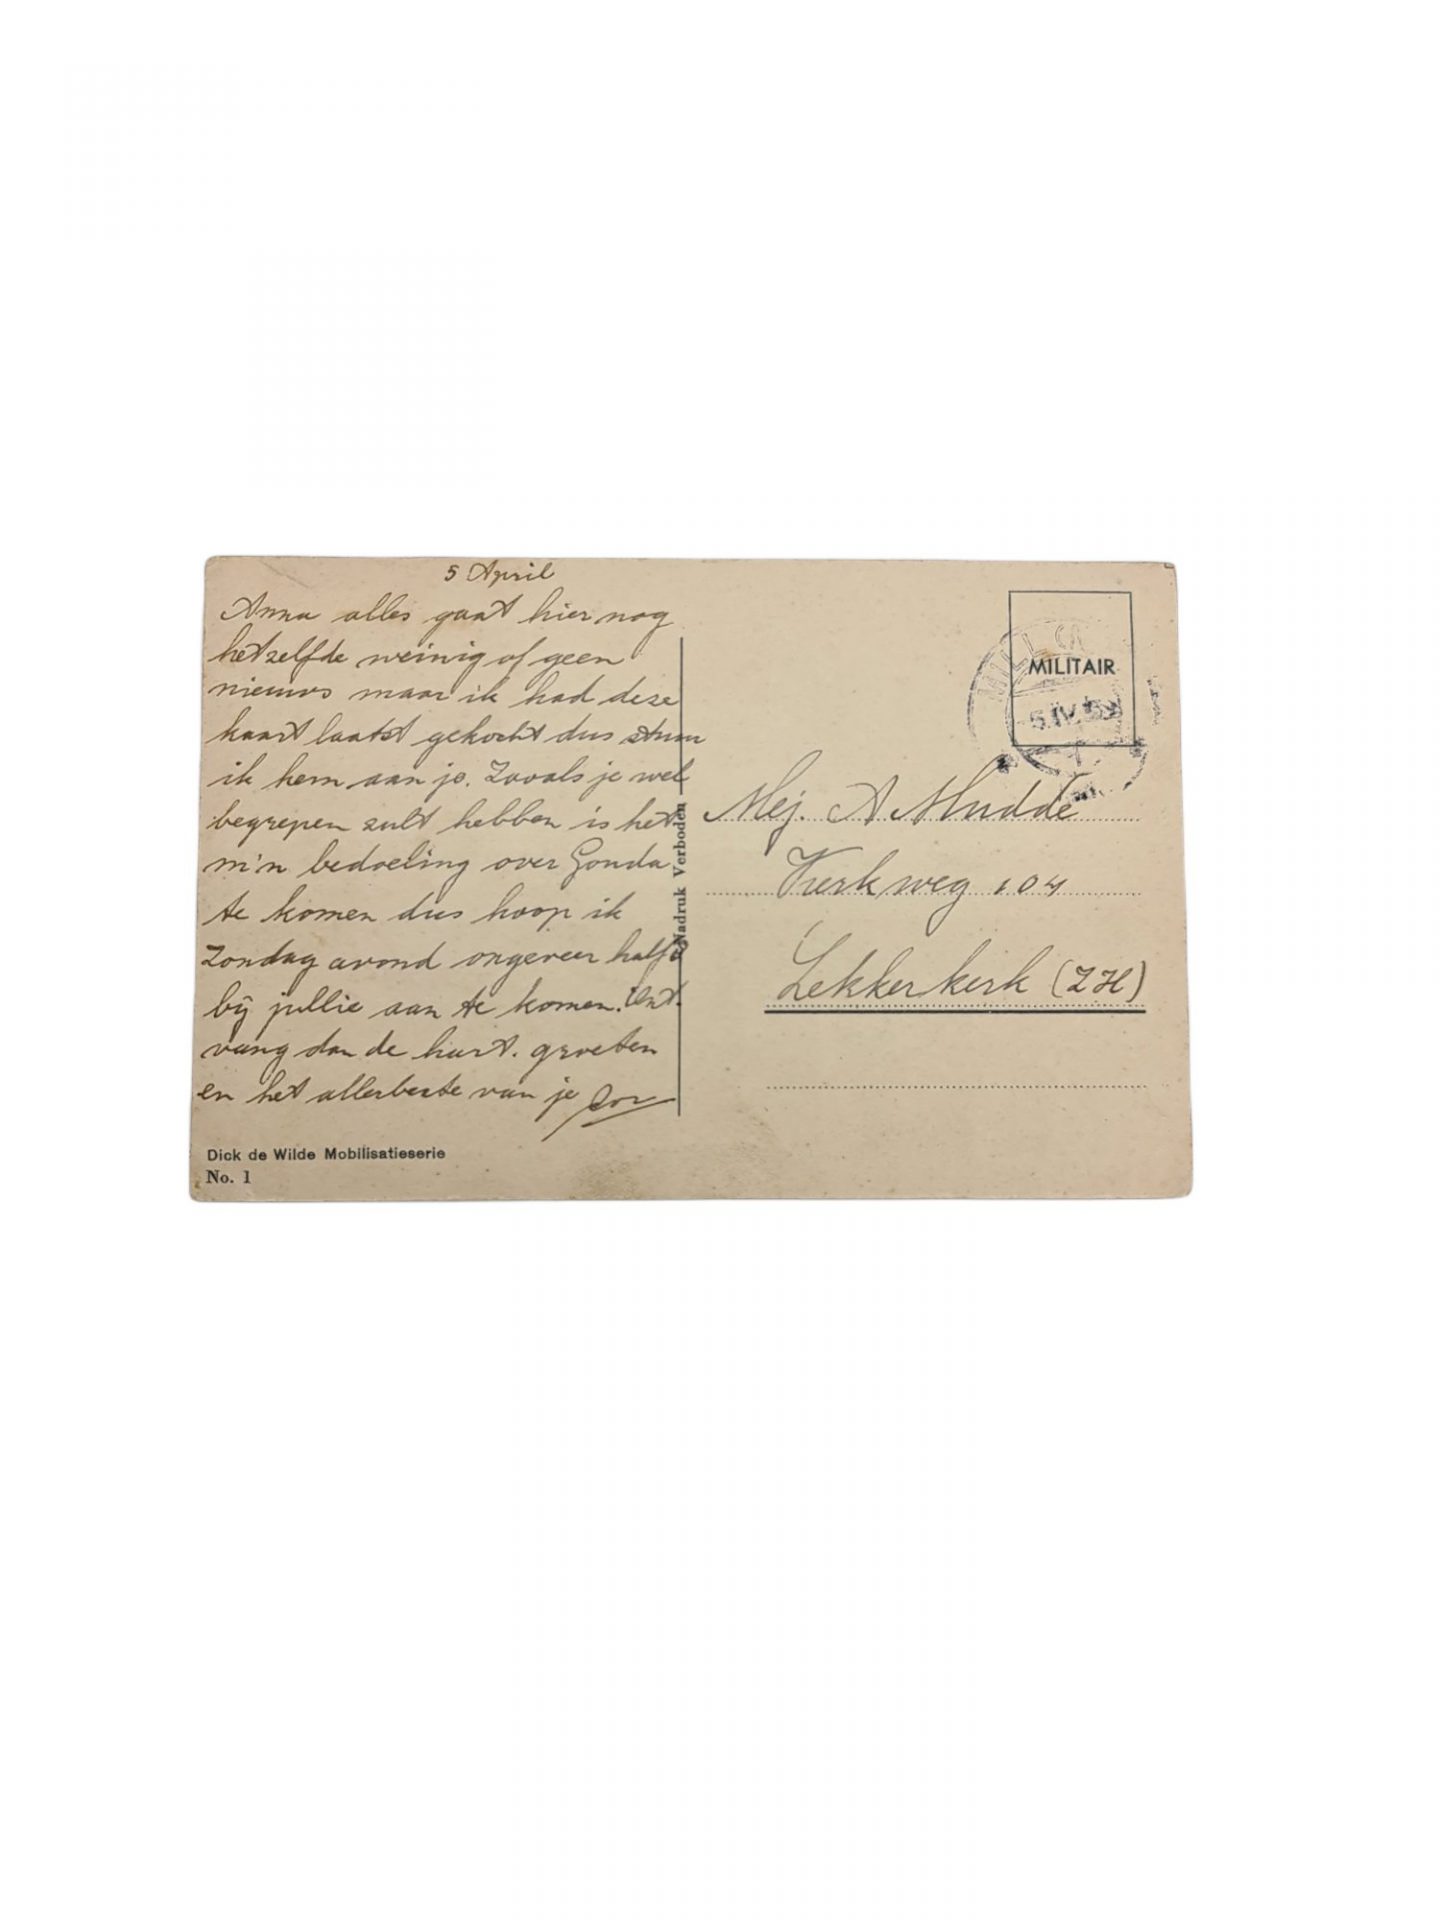 5 April
Anna alles gaat hier nog
hetzelfde weinig of geen
nieuws maar ik had deze
kaart laatst gekocht dus stuur
ik hem aan je. Zooals je wel
begrepen zult hebben is het
m'n bedoeling over Gouda
te komen dus hoop ik
Zondag avond ongeveer half
bij jullie aan te komen. Ont-
vang dan de hart. groeten
en het allerbeste van je
Dick de Wilde Mobilisatieserie
No. 1
Nadruk Verboden
MILITAIR
Mej. A Mudde
Kerkweg 104
Lekkerkerk (ZH)